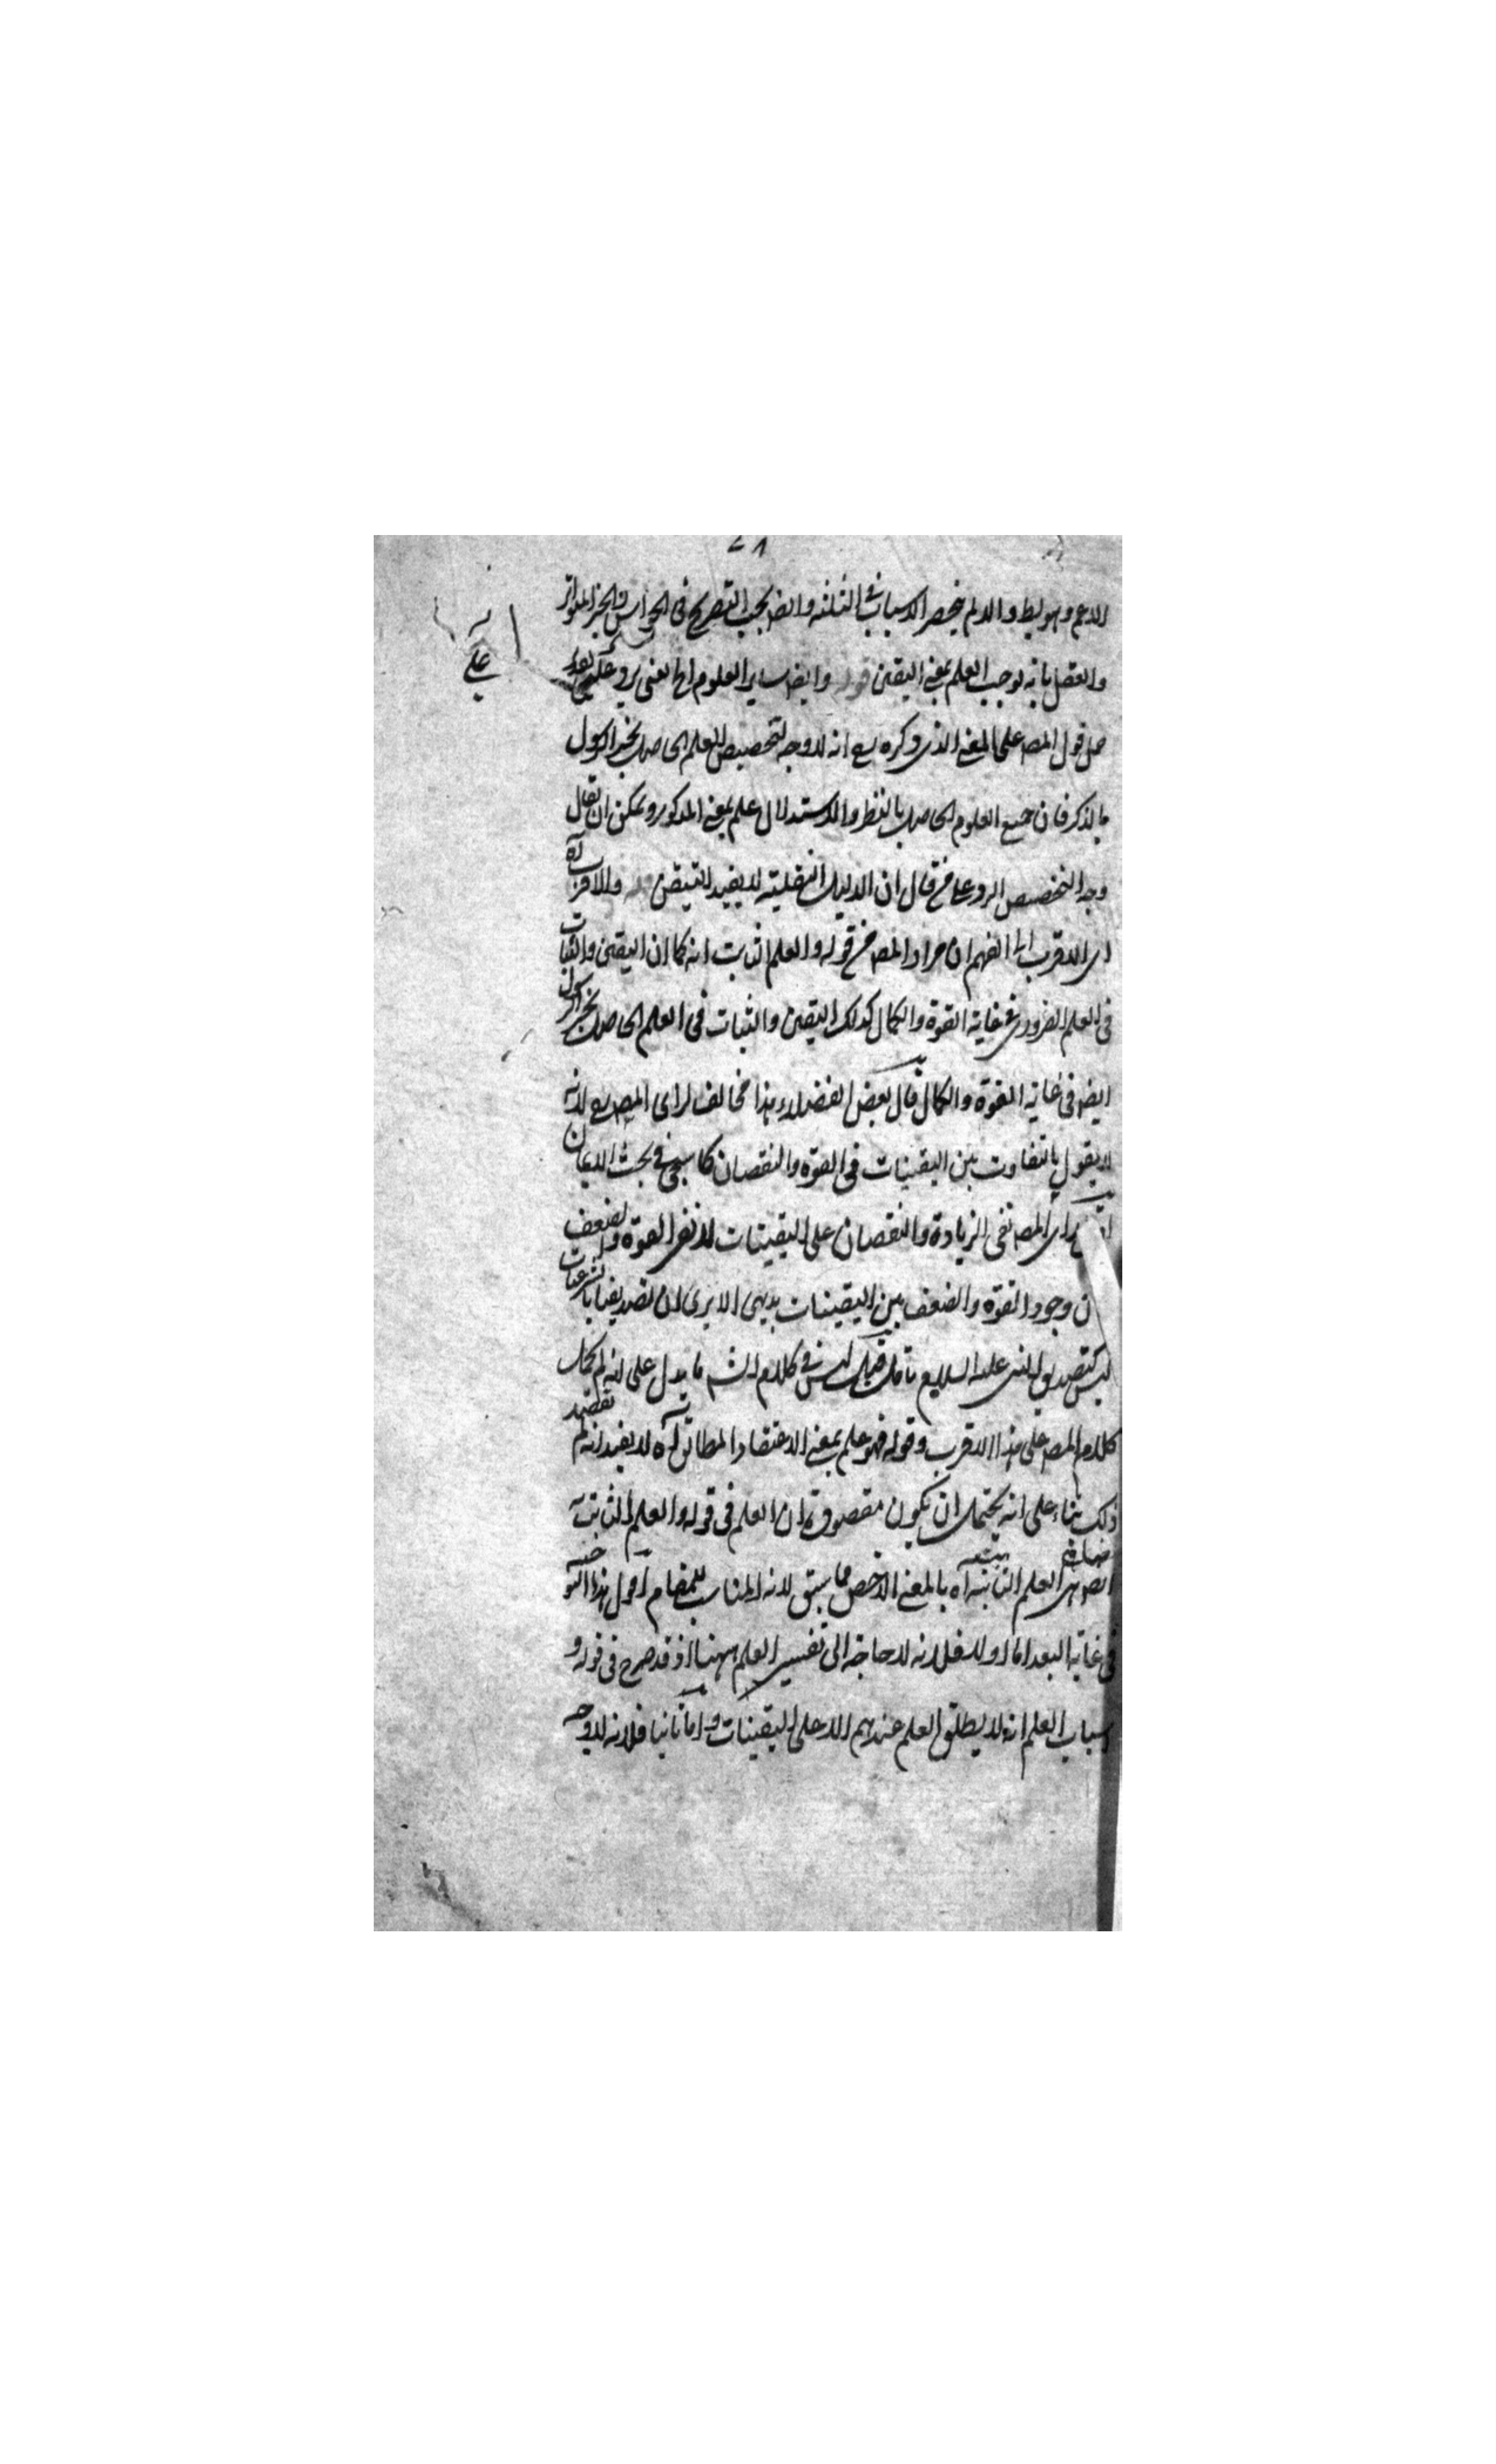 الاعم وهو بط والا لم ينحصر الاسباب في الثلثة وايضا يجب التصريح في الحواس والخبر المتواتر
والعقل بانه يوجب العلم بمعنى اليقين قوله وايضا ساير العلوم الخ يعنى يرد عليه بعد
حمل قول المص على المعنى الذى ذكره مع انه لا وجه لتخصيص العلم الحاصل بخبر الرسول
بالذكر فان جميع العلوم الحاصل بالنظر والاستدلال علم بمعنى المذكور ويمكن ان يقال
وجه التخصيص الرد على من قال ان الدليل النقلية لا يفيد التيقن قوله والاقرب آه
اى الاقرب الى الفهم ان مراد المص من قوله والعلم الثابت انه كما ان اليقين والثبات
في العلم الضرورى في غاية القوة والكمال كذلك اليقين والثبات فى العلم الحاصل بخبر الرسول
ايضا فى غاية القوة والكمال قال بعض الفضلاء هذا مخالف لراى المص مع لانه
لا يقول بالتفاوت بين اليقينيات فى القوة والنقصان كما سيجئ في بحث الايمان
راى المص نفى الزيادة والنقصان على اليقينيات لا نفى القوة والضعف
ن وجود القوة والضعف بين اليقينيات بديهى الا يرى ان تصديقنا بالشرعيات
ليس كتصديق النبى عليه السلام تأمل قيل ليس في كلام الش ما يدل على انه لم يحمل
كلام المص على هذا الاقرب وقوله فهو علم بمعنى الاعتقاد المطابق آه لا يفيد انه لم يقصد
ذلك بناء على انه يحتمل ان يكون مقصوده ان العلم فى قوله والعلم الثابت به
العلم الثابتة آه بالمعنى الاخص مما سبق لانه المناسب للمقام اقول هذا التوجيه
فى غاية البعد اما اولا فلانه لا حاجة الى تفسير العلم ههنا اذ قد صرح فى قوله و
اسباب العلم انه لا يطلق العلم عندهم الا على اليقينيات واما ثانيا فلانه لا وجه